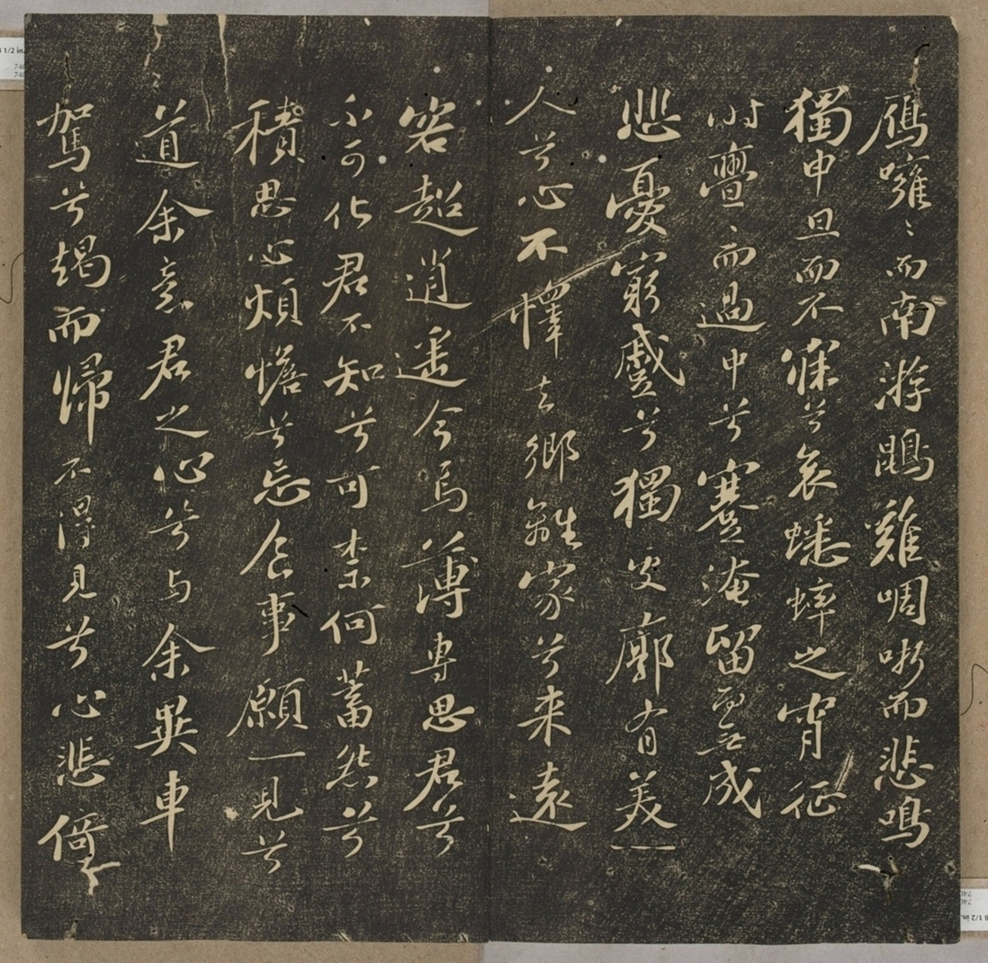 鴈噰〻而南游鵾雞啁哳而悲鳴
獨申旦而不寐兮哀蟋蟀之宵征
時亹〻而過中兮蹇淹留而無成
悲憂窮慼兮獨処廓有美一
人兮心不懌去鄉離家兮来遠
客超逍遙今焉薄專思君兮
不可化君不知兮可柰何蓄怨兮
積思心煩憺兮忘食事願一見兮
道余意君之心兮与余異車
駕兮朅而歸不得見兮心悲倚